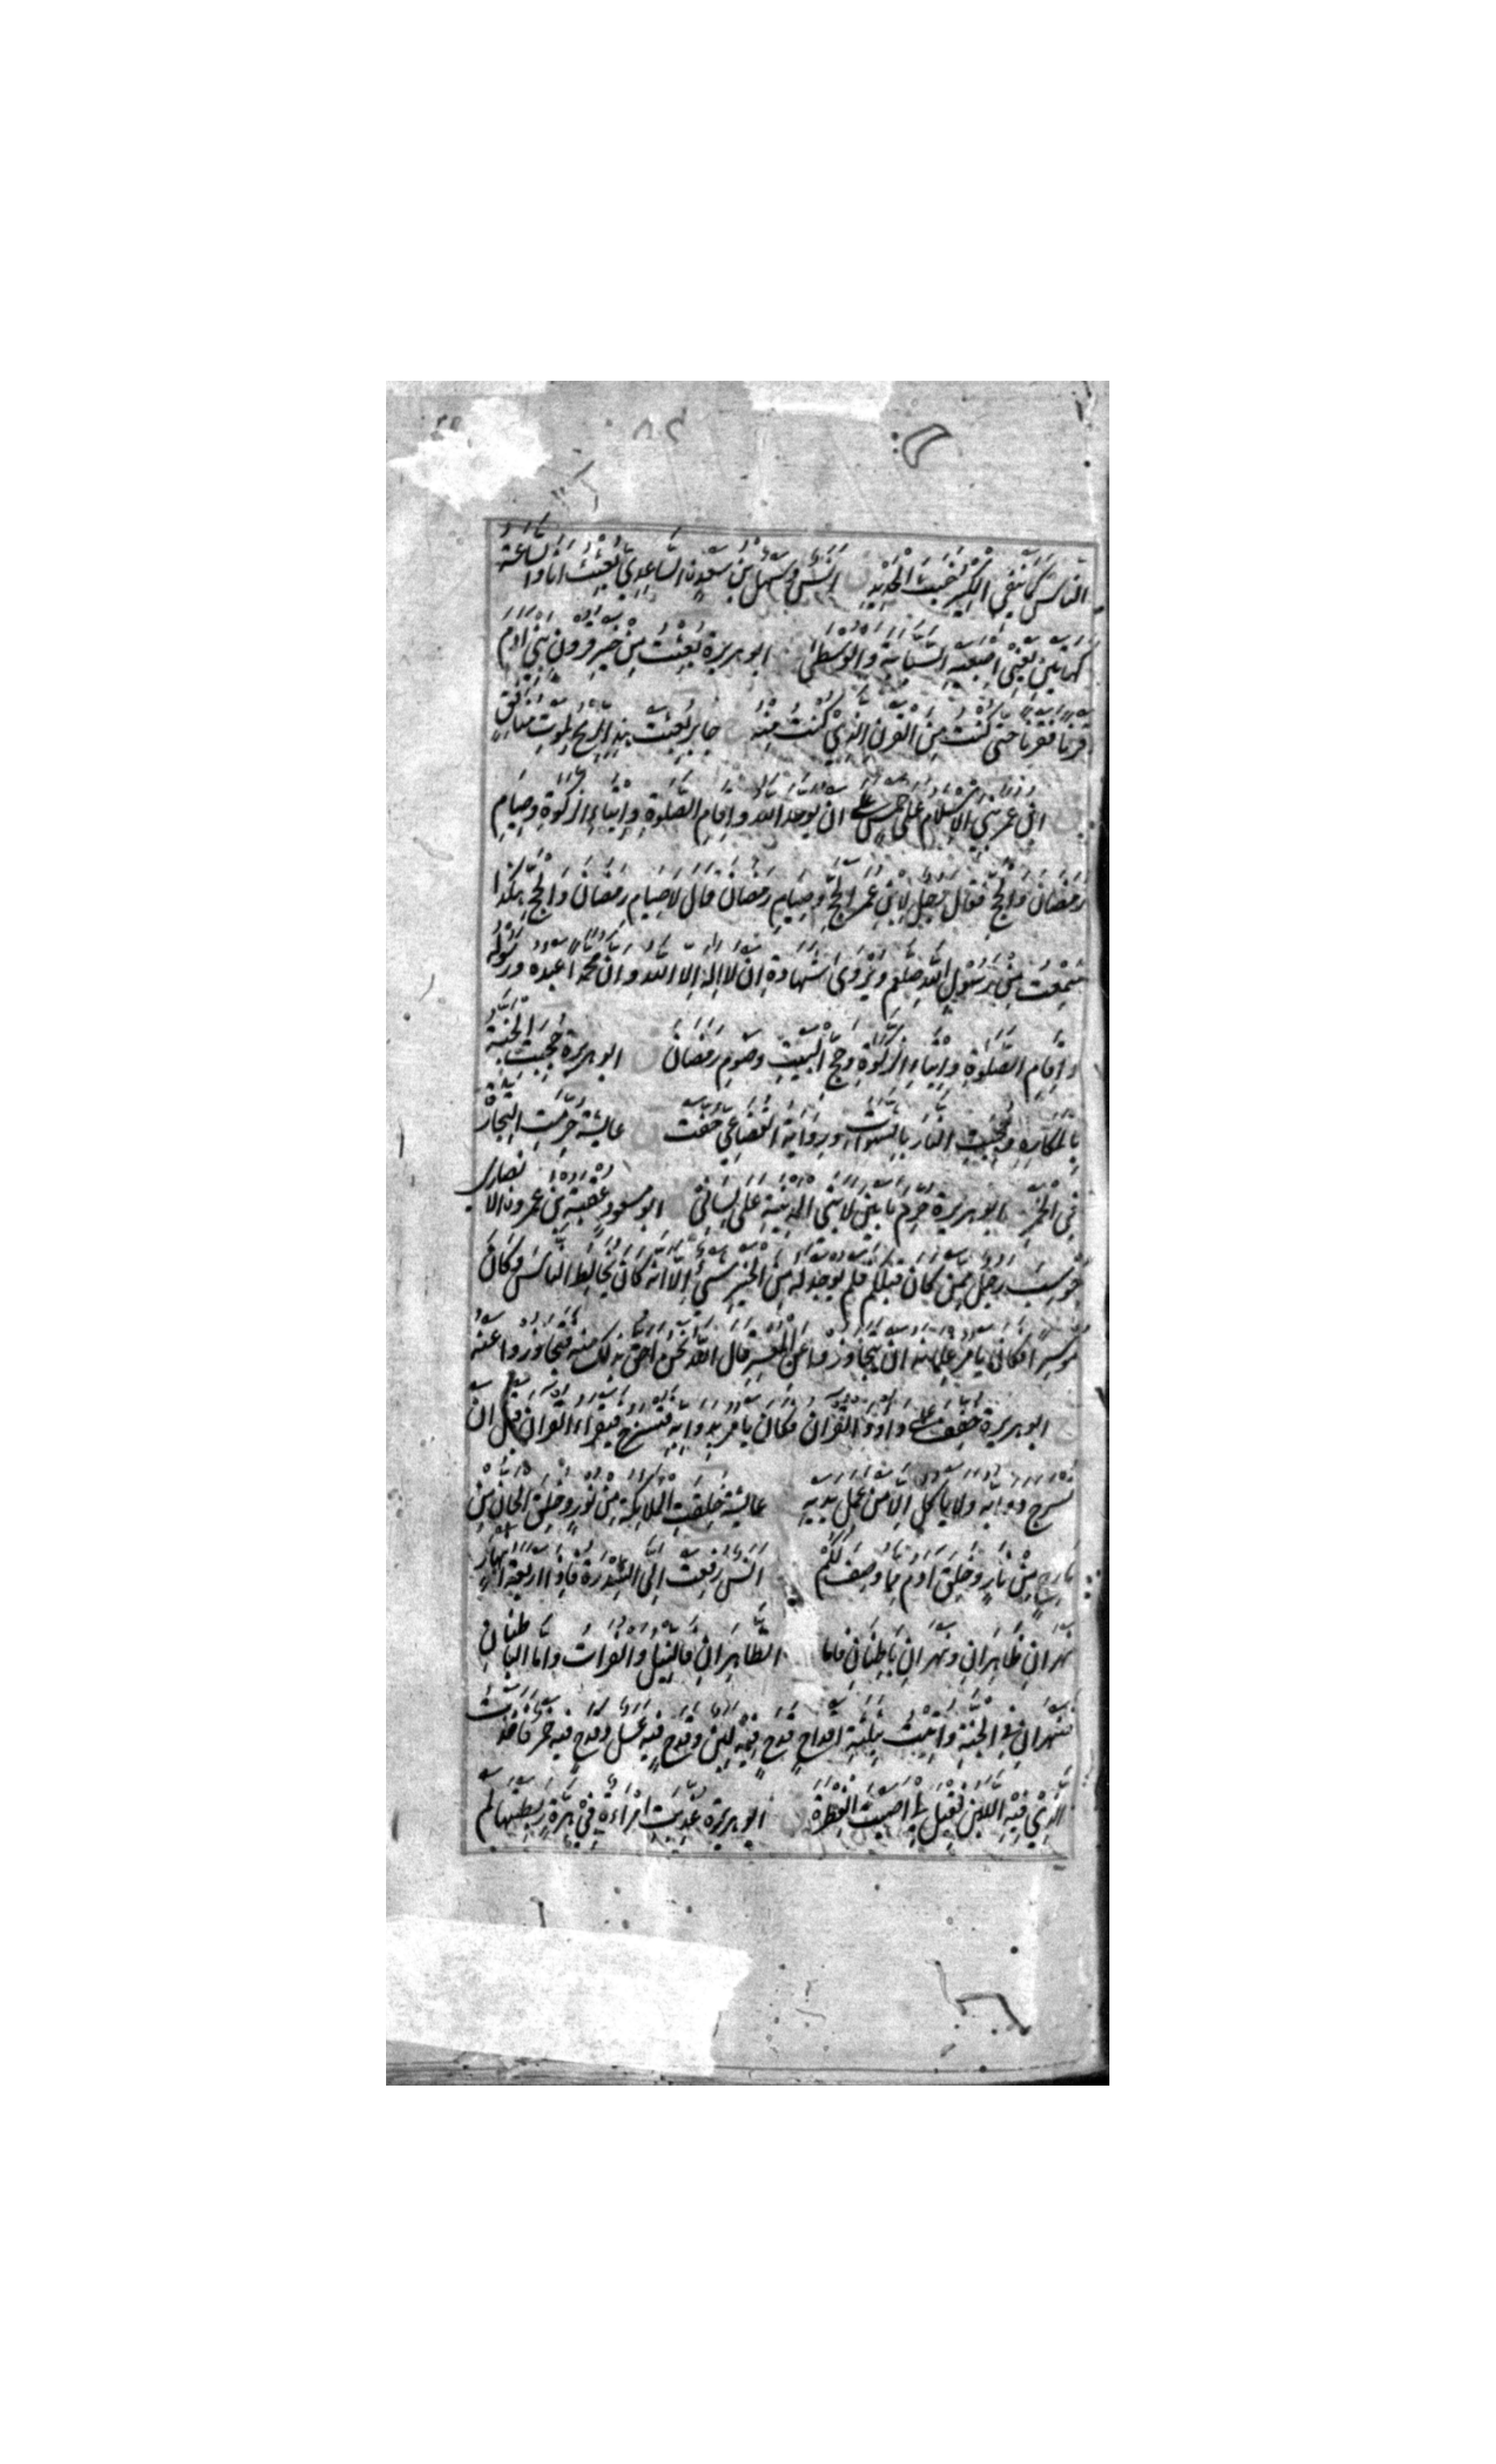 الناس كما ينفي الكير خبث الحديد انس وسهل بن سعد الساعدي بعثت انا والساعة
كهاتين يعني اصبعيه السبابة والوسطى ابو هريرة بعثت من خير قرون بني ادم
قرنا فقرنا حتى كنت من القرن الذي كنت منه جابر بعثت هذه الريح لموت منافق
ابن عمر بني الاسلام على خمس على ان يوحد الله واقام الصلوة وايتاء الزكوة وصيام
رمضان والحج فقال رجل لابن عمر الحج وصيام رمضان قال لا صيام رمضان والحج هكذا
سمعت من رسول الله صلعم ويروى شهادة ان لا اله الا الله وان محمدا عبده ورسوله
واقام الصلوة وايتاء الزكوة وحج البيت وصوم رمضان ابو هريرة حجبت الجنة
بالمكاره وحجبت النار بالشهوات وبرواية القضاعي حفت عايشة حرمت التجارة
في الخمر ابو هريرة حرم ما بين لابتي المدينة على لساني ابو مسعود عقبة بن عمرو الانصاري
حوسب رجل ممن كان قبلكم فلم يوجد له من الخير شيء الا انه كان يخالط الناس وكان
موسرا فكان يامر غلمانه ان يتجاوزوا عن المعسر قال الله نحن احق بذلك منه فتجاوزوا عنه
ابو هريرة خفف على داود القران فكان يامر بدوابه فتسرج فيقراء القران قبل ان
تسرج دوابه ولا ياكل الا من عمل يديه عايشة خلقت الملايكة من نور وخلق الجان من
مارج من نار وخلق ادم مما وصف لكم انس رفعت الى السدرة فاذا اربعة انهار
نهران ظاهران ونهران باطنان فاما الظاهران فالنيل والفرات واما الباطنان
فنهران في الجنة واتيت بثلثة اقداح قدح فيه لبن وقدح فيه عسل وقدح فيه خمر فاخذت
الذي فيه اللبن فقيل لي اصبت الفطرة ابو هريرة عذبت امراءة في هرة ربطتها لم